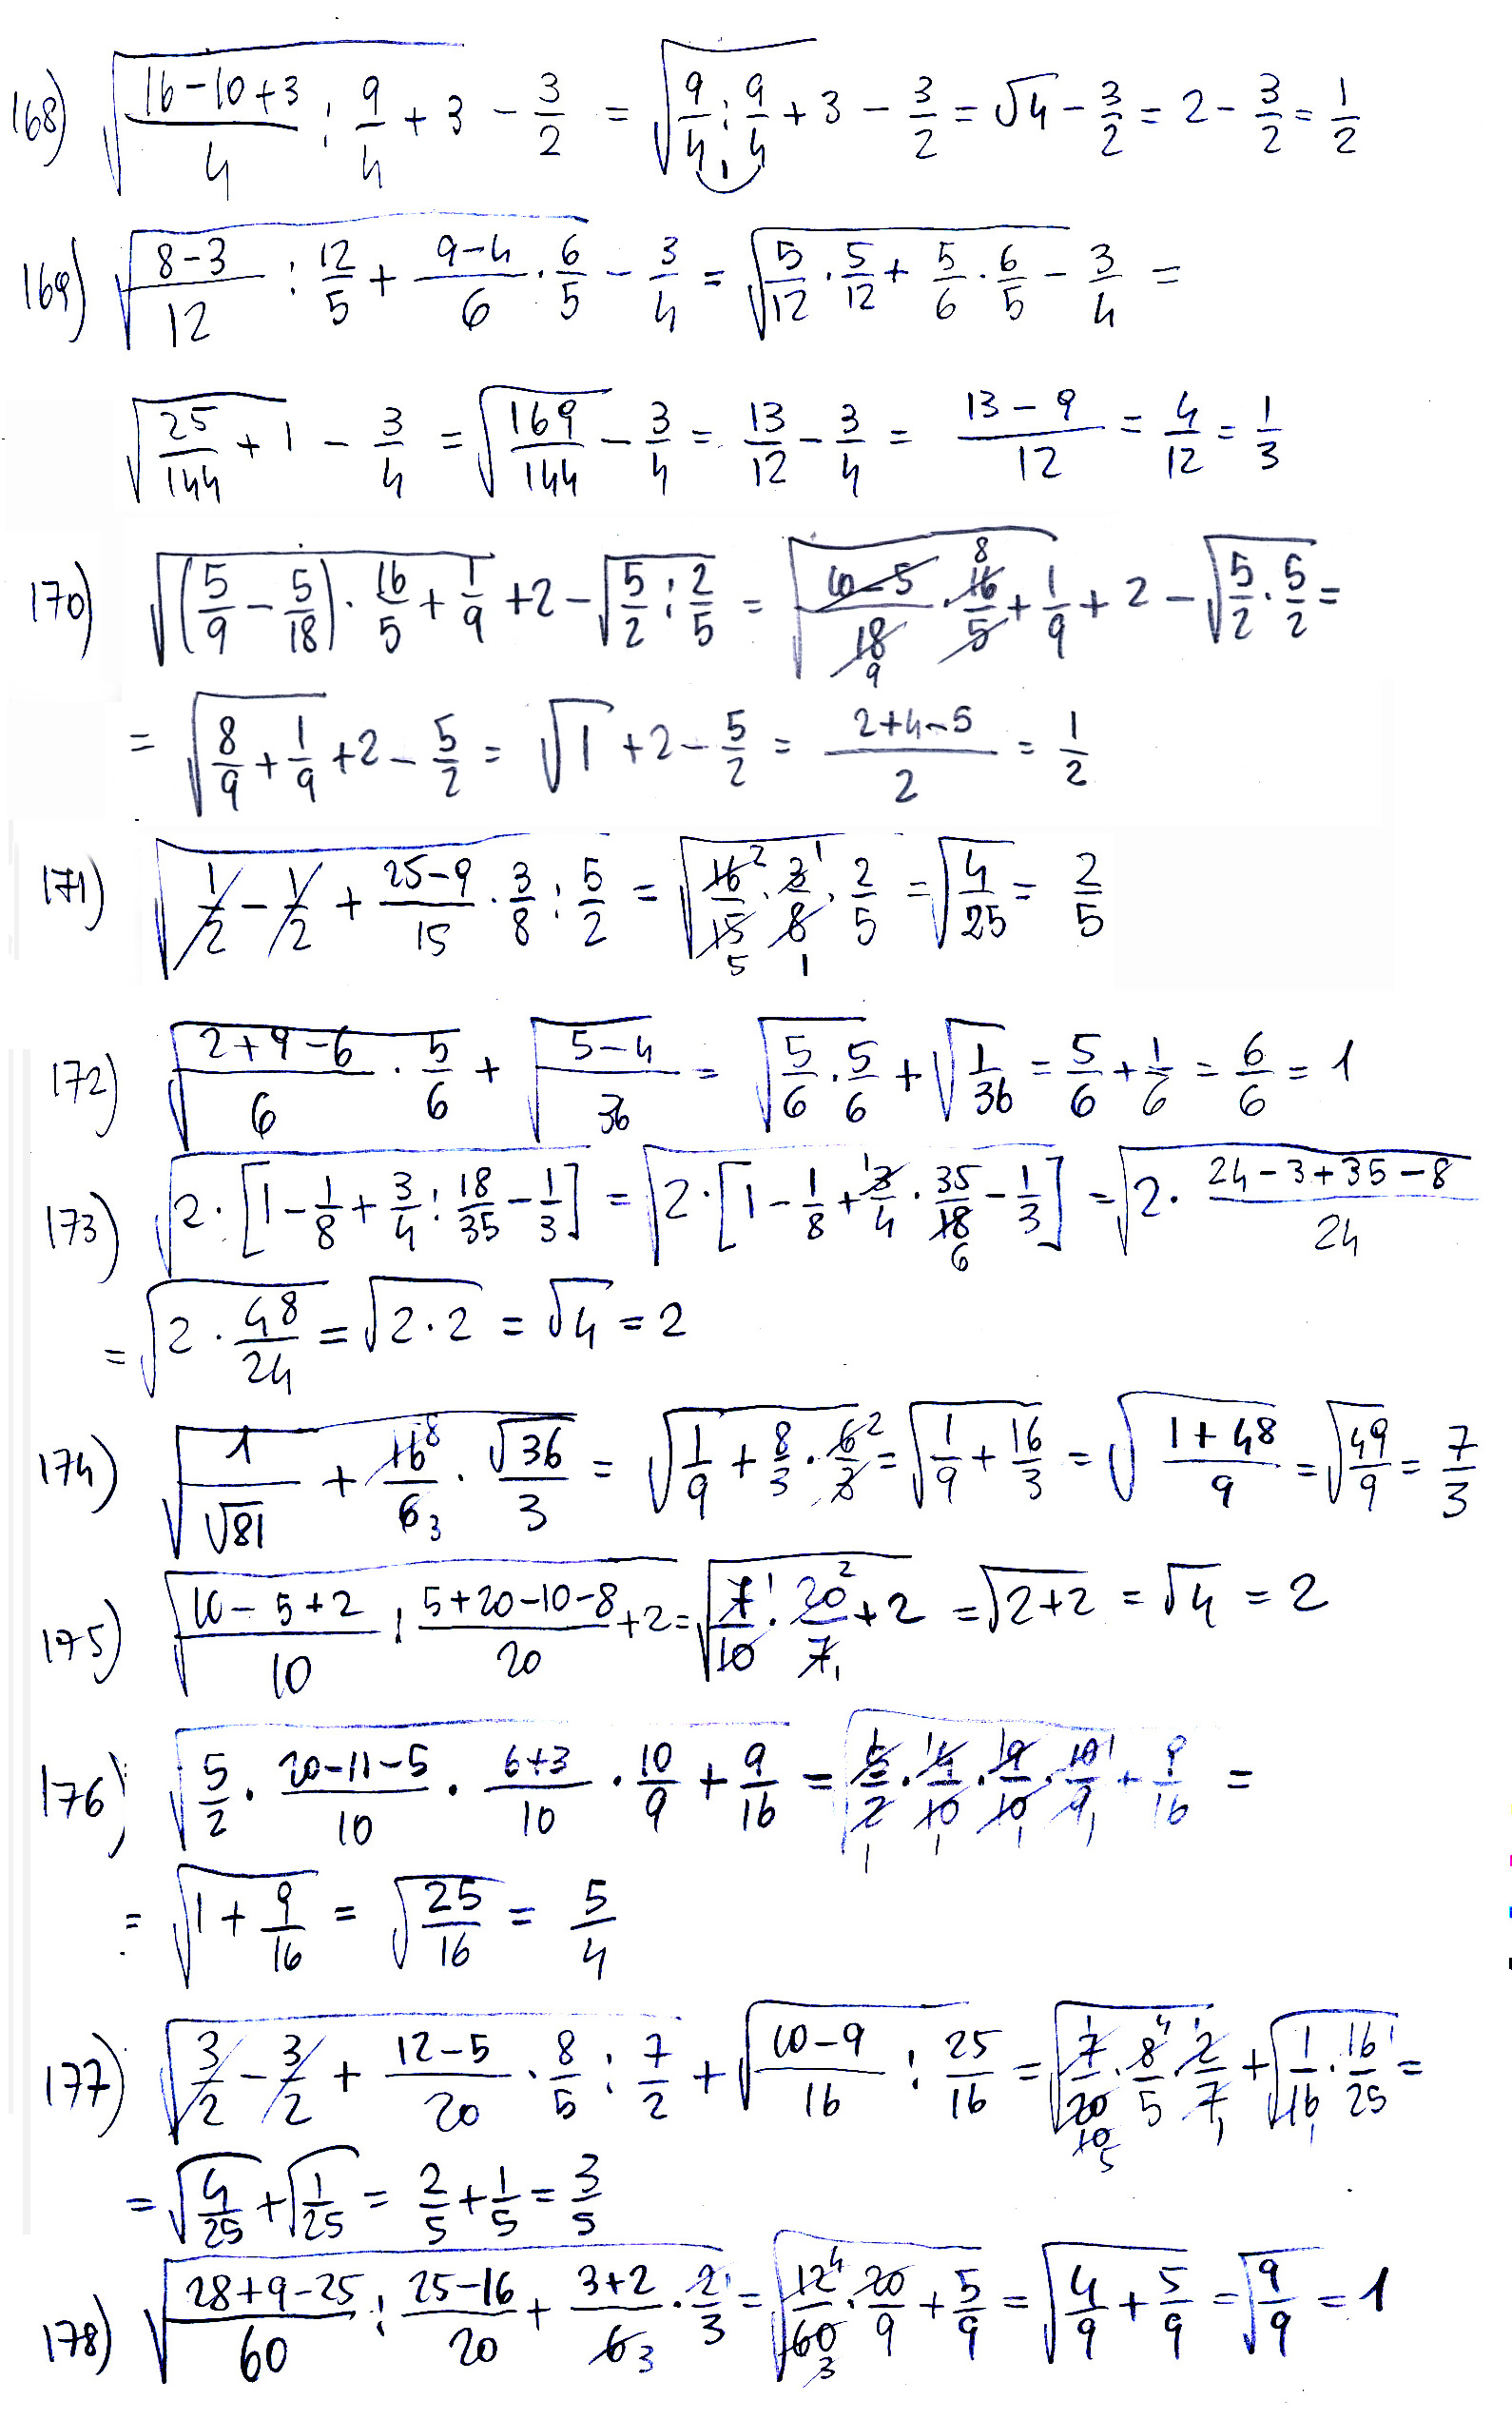 168) √((16-10+3)/4 : 9/4 + 3) - 3/2 = √(9/4 : 9/4 + 3) - 3/2 = √4 - 3/2 = 2 - 3/2 = 1/2
169) √((8-3)/12 : 12/5 + (9-4)/6 · 6/5) - 3/4 = √(5/12 · 5/12 + 5/6 · 6/5) - 3/4 =
√(25/144 + 1) - 3/4 = √(169/144) - 3/4 = 13/12 - 3/4 = (13-9)/12 = 4/12 = 1/3
170) √((5/9 - 5/18) · 16/5 + 1/9) + 2 - √(5/2 : 2/5) = √((10-5)/18 9 · 16 8/5 + 1/9) + 2 - √(5/2 · 5/2) =
= √(8/9 + 1/9) + 2 - 5/2 = √1 + 2 - 5/2 = (2+4-5)/2 = 1/2
171) √(1/2 - 1/2 + (25-9)/15 · 3/8 : 5/2) = √(16 2/15 5 · 3 1/8 1 · 2/5) = √(4/25) = 2/5
172) √((2+9-6)/6 · 5/6) + √((5-4)/36) = √(5/6 · 5/6) + √(1/36) = 5/6 + 1/6 = 6/6 = 1
173) √(2 · [1 - 1/8 + 3/4 : 18/35 - 1/3]) = √(2 · [1 - 1/8 + 1 3/4 · 35/18 6 - 1/3]) = √(2 · (24-3+35-8)/24)
= √(2 · 48/24) = √(2 · 2) = √4 = 2
174) √(1/√81 + 16 8/6 3 · √36/3) = √(1/9 + 8/3 · 6 2/3) = √(1/9 + 16/3) = √((1+48)/9) = √(49/9) = 7/3
175) √((10-5+2)/10 : (5+20-10-8)/20 + 2) = √(7 1/10 · 20 2/7 1 + 2) = √(2+2) = √4 = 2
176) √(5/2 · (20-11-5)/10 · (6+3)/10 · 10/9 + 9/16) = √(5 1/2 1 · 4 1/10 1 · 9 1/10 1 · 10 1/9 1 + 9/16) =
= √(1 + 9/16) = √(25/16) = 5/4
177) √(3/2 - 3/2 + (12-5)/20 · 8/5 : 7/2) + √((10-9)/16 : 25/16) = √(7 1/20 10 5 · 8 4/5 · 2 1/7 1) + √(1/16 1 · 16 1/25) =
= √(4/25) + √(1/25) = 2/5 + 1/5 = 3/5
178) √((28+9-25)/60 : (25-16)/20 + (3+2)/6 3 · 2 1/3) = √(12 4/60 3 · 20/9 + 5/9) = √(4/9 + 5/9) = √(9/9) = 1